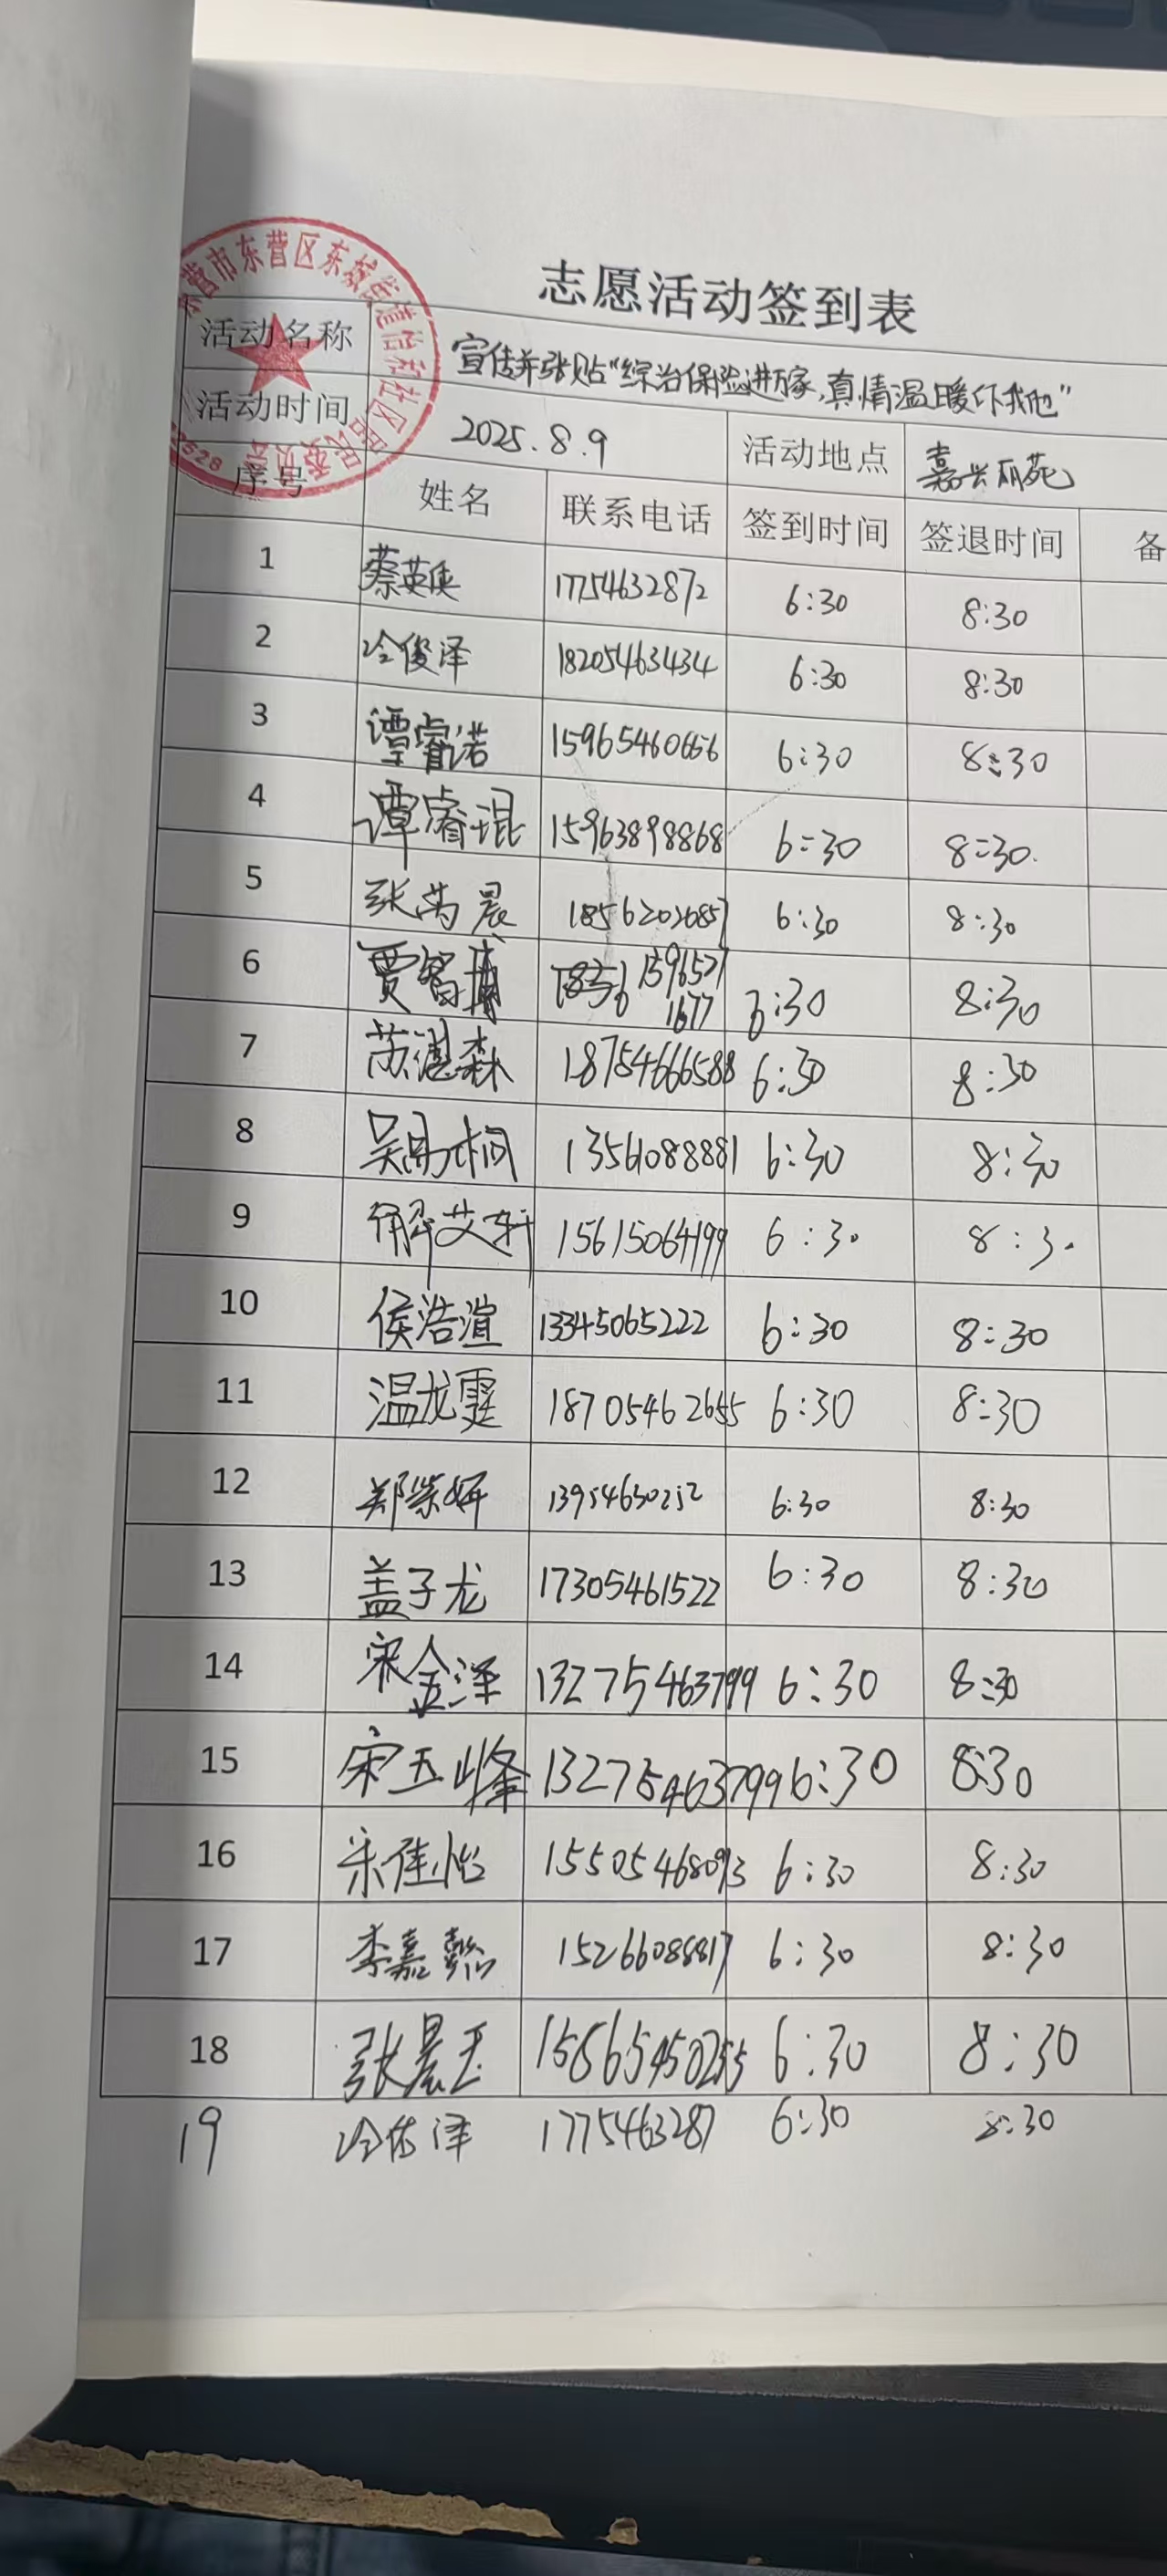 志愿活动签到表
活动名称 宣传并张贴“综治保险进万家,真情温暖你我他”
活动时间 2025.8.9 活动地点 嘉兴丽苑
序号 姓名 联系电话 签到时间 签退时间 备
1 蔡英俠 17754632872 6:30 8:30
2 冷俊泽 18205463434 6:30 8:30
3 谭睿诺 15965460656 6:30 8:30
4 谭睿琨 15963898868 6:30 8:30
5 张芮晨 18562026857 6:30 8:30
6 贾智博 15965271677 6:30 8:30
7 苏湛森 18754666588 6:30 8:30
8 吴易桐 13561088881 6:30 8:30
9 解艾轩 15615064199 6:30 8:30
10 侯浩渲 13345065222 6:30 8:30
11 温龙霆 18705462655 6:30 8:30
12 郑紫妍 13954630252 6:30 8:30
13 盖子龙 17305461522 6:30 8:30
14 宋金泽 13275463799 6:30 8:30
15 宋玉峰 13275463799 6:30 8:30
16 宋佳怡 15505468093 6:30 8:30
17 李嘉懿 15266088817 6:30 8:30
18 张晨玉 15865450255 6:30 8:30
19 冷佑泽 1775463287 6:30 8:30